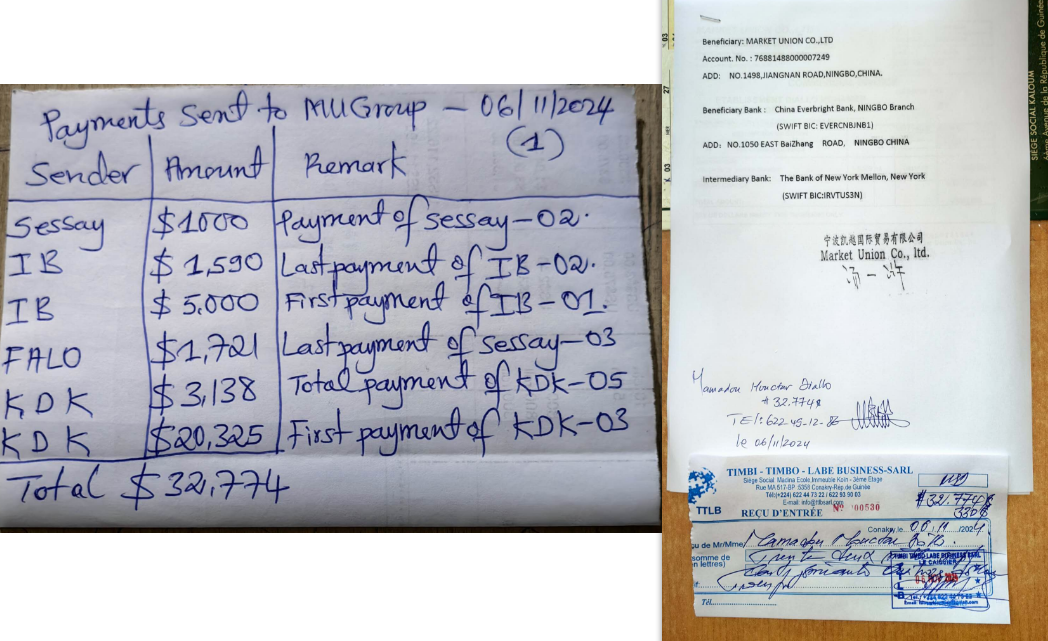 Payments sent to MUGroup – 06/11/2024
(1)
Sender Amount Remark
Sessay $1000 Payment of sessay–02.
IB $1,590 Last payment of IB–02.
IB $5,000 First payment of IB–01.
FALO $1,721 Last payment of sessay–03
KDK $3,138 Total payment of KDK–05
KDK $20,325 First payment of KDK–03
Total $32,774
Beneficiary: MARKET UNION CO.,LTD
Account. No. : 76881488000007249
ADD: NO.1498,JIANGNAN ROAD,NINGBO,CHINA.
Beneficiary Bank : China Everbright Bank, NINGBO Branch
(SWIFT BIC: EVERCNBJNB1)
ADD: NO.1050 EAST BaiZhang ROAD, NINGBO CHINA
Intermediary Bank: The Bank of New York Mellon, New York
(SWIFT BIC:IRVTUS3N)
宁波凯越国际贸易有限公司
Market Union Co., ltd.
Mamadou Mouctar Diallo
# 32.774$
TEl: 622-45-12-86
le 06/11/2024
TIMBI - TIMBO - LABE BUSINESS-SARL
Siège Social: Madina Ecole,Immeuble Koin - 3ème Etage
Rue MA 517-BP: 5358 Conakry-Rép.de Guinée
Tél:(+224) 622 44 73 22 / 622 93 90 03
E-mail: info@ttlbsarl.com
TTLB REÇU D'ENTRÉE Nº 00530
USD
# 32.774$
330$
Conakry,le 06.11 /2024
çu de Mr/Mme Mamadou Mouctar Diallo.
somme de
en lettres) Trente deux
TIMBI TIMBO LABE BUSINESS SARL
LE CAISSIER
TTLB
Tél.
SIEGE SOCIAL KALOUM
6ème Avenue de la République de Guinée
03
27
X 03